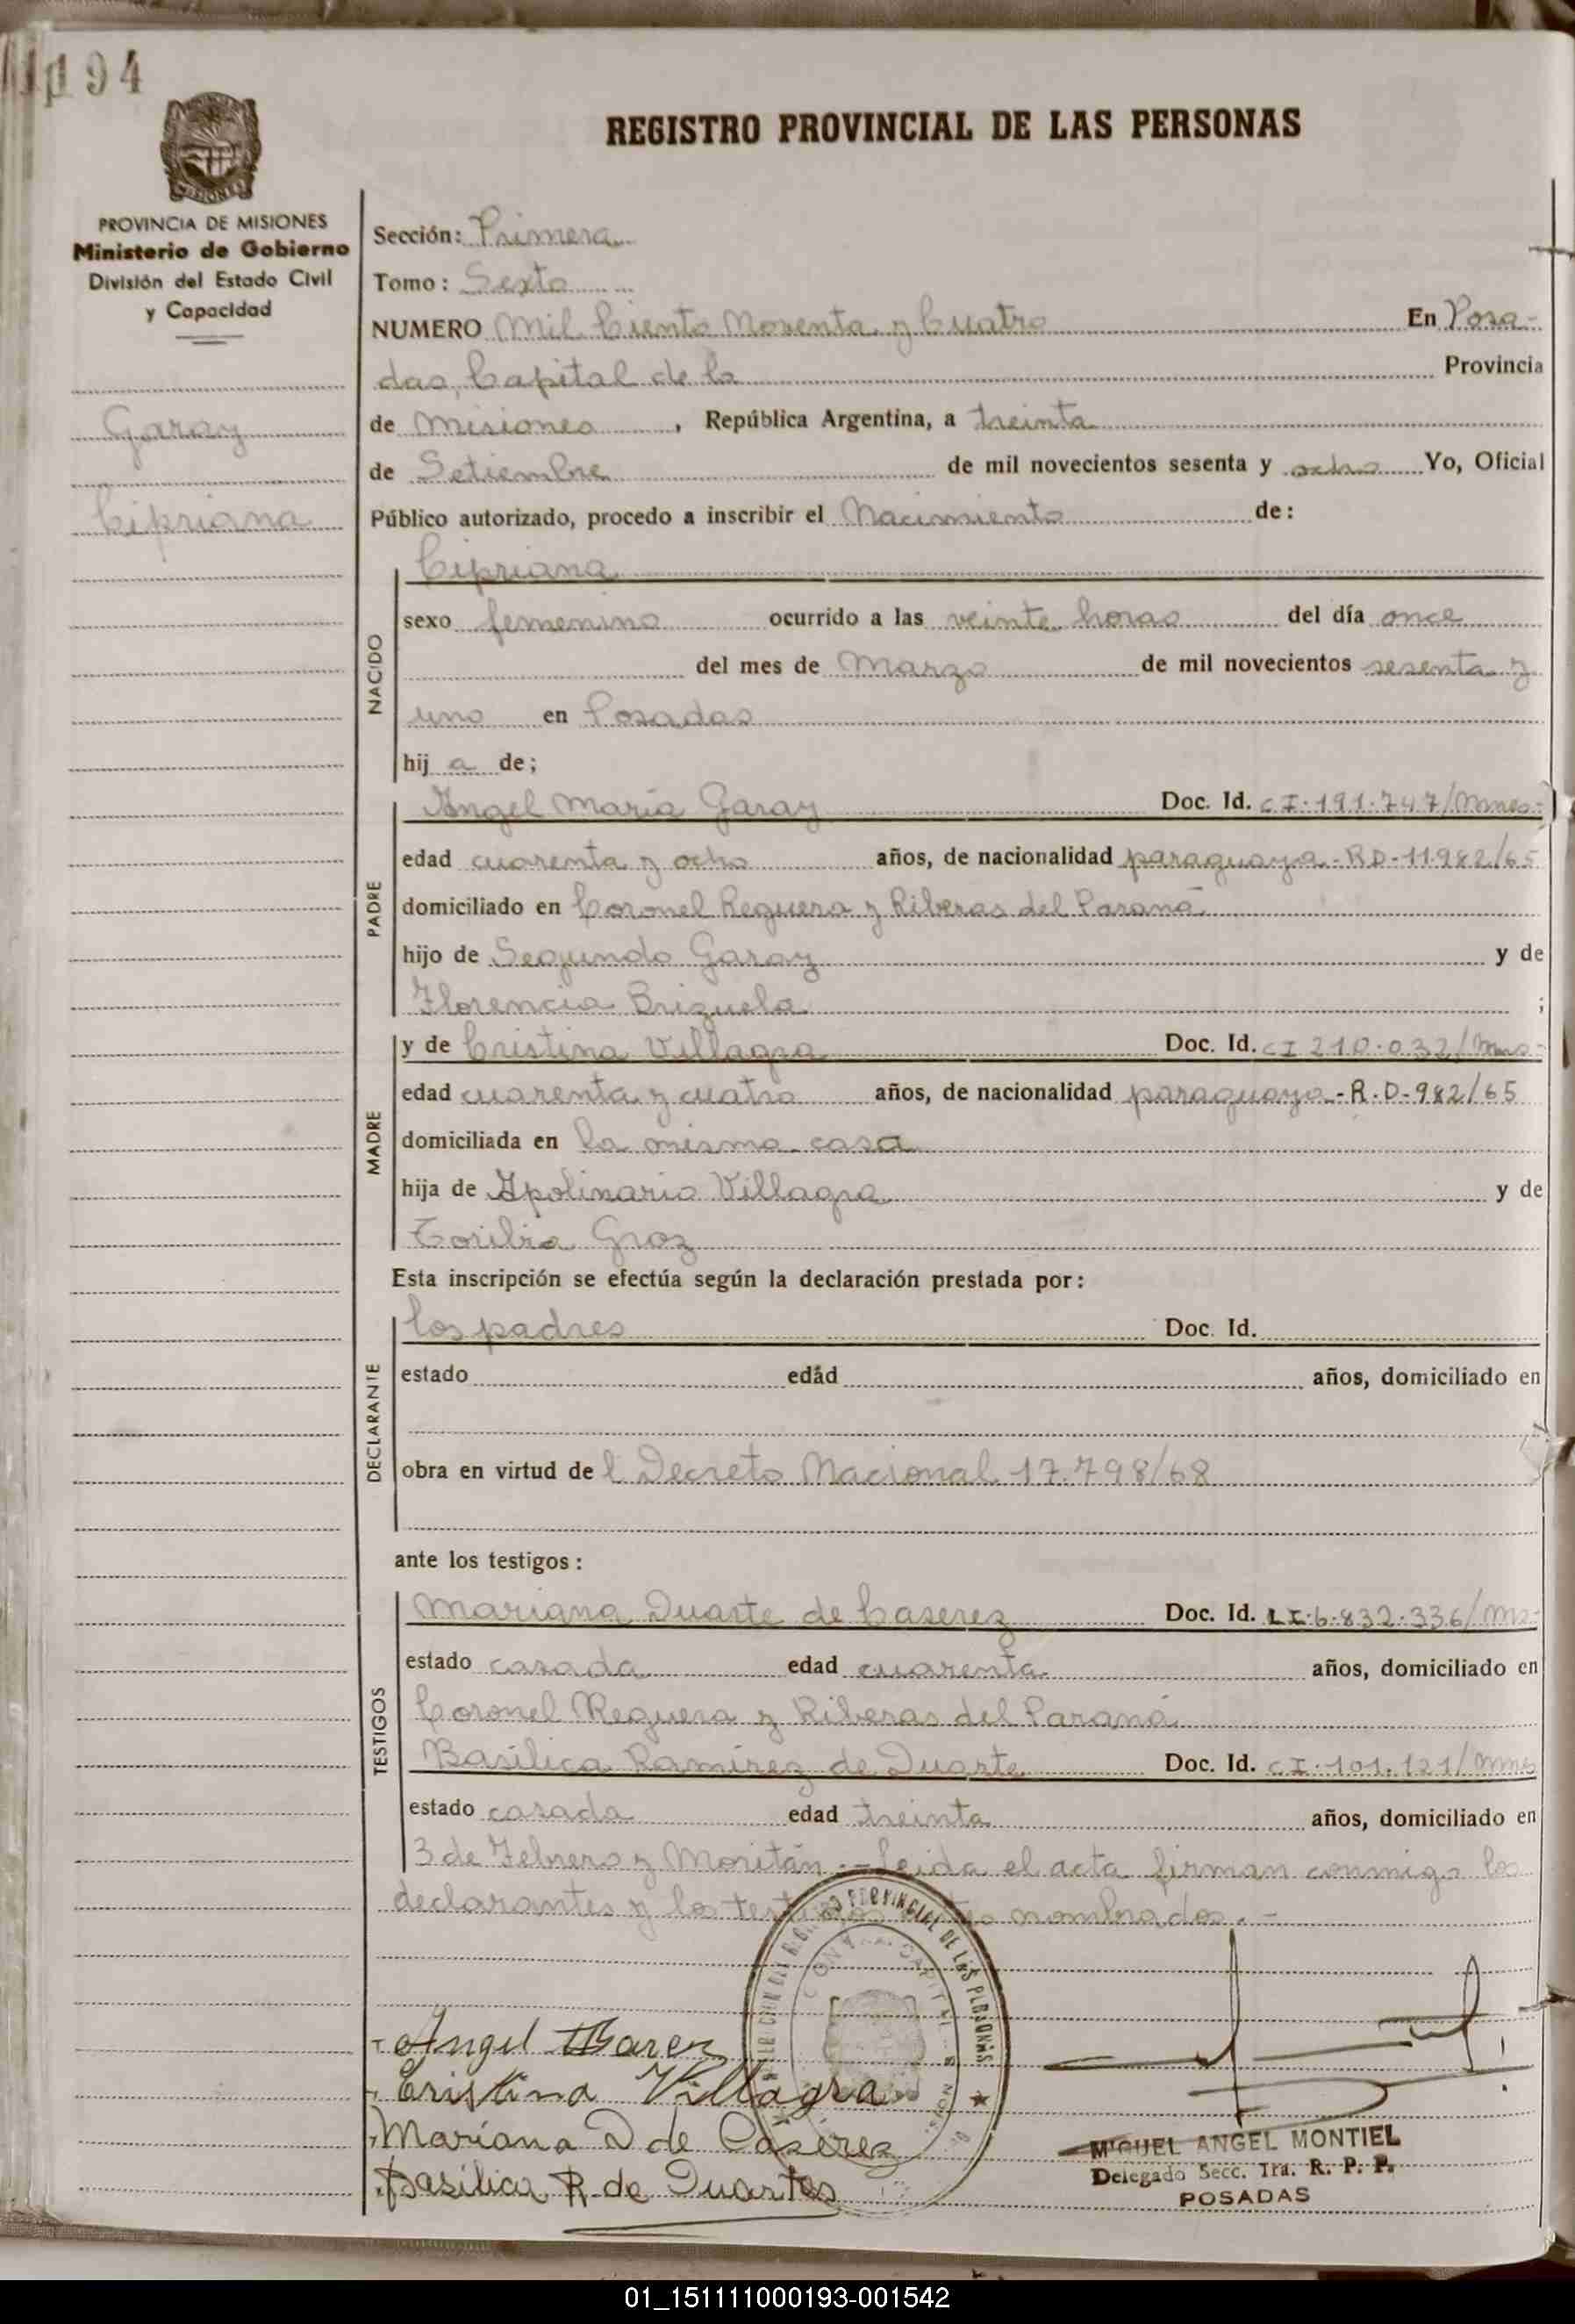 1194
REGISTRO PROVINCIAL DE LAS PERSONAS
MISIONES
PROVINCIA DE MISIONES
Ministerio de Gobierno
División del Estado Civil
y Capacidad
Garay
Cipriana
Sección: Primera
Tomo: Sexto
NUMERO Mil Ciento Noventa y Cuatro En Posa-
das, Capital de la Provincia
de Misiones, República Argentina, a treinta
de Setiembre de mil novecientos sesenta y ocho Yo, Oficial
Público autorizado, procedo a inscribir el Nacimiento de:
NACIDO
Cipriana
sexo femenino ocurrido a las veinte horas del día once
del mes de Marzo de mil novecientos sesenta y
uno en Posadas
hij a de;
PADRE
Angel María Garay Doc. Id. CI.191.747/Mnes-
edad cuarenta y ocho años, de nacionalidad paraguaya-RD-11982/65
domiciliado en Coronel Reguera y Riberas del Paraná
hijo de Segundo Garay y de
Florencia Brizuela ;
MADRE
y de Cristina Villagra Doc. Id. CI 210.032/Mns-
edad cuarenta y cuatro años, de nacionalidad paraguaya-R.D-982/65
domiciliada en la misma casa
hija de Apolinario Villagra y de
Toribia
Esta inscripción se efectúa según la declaración prestada por:
DECLARANTE
los padres Doc. Id.
estado edad años, domiciliado en
obra en virtud de l Decreto Nacional 17.798/68
ante los testigos:
TESTIGOS
Mariana Duarte de Caserez Doc. Id. LI.6.832.336/Mns-
estado casada edad cuarenta años, domiciliado en
Coronel Reguera y Riberas del Paraná
Basilica Ramirez de Duarte Doc. Id. CI.101.121/Mnes
estado casada edad treinta años, domiciliado en
3 de Febrero y Moritán.- Leida el acta firman conmigo los
declarantes y los testigos antes nombrados.-
PROVINCIAL DE LAS PERSONAS
Angel
Cristina Villagra
Mariana D de Cáserez
Basilica R. de Duartes
MIGUEL ANGEL MONTIEL
Delegado Secc. 1ra. R. P. P.
POSADAS
01_151111000193-001542